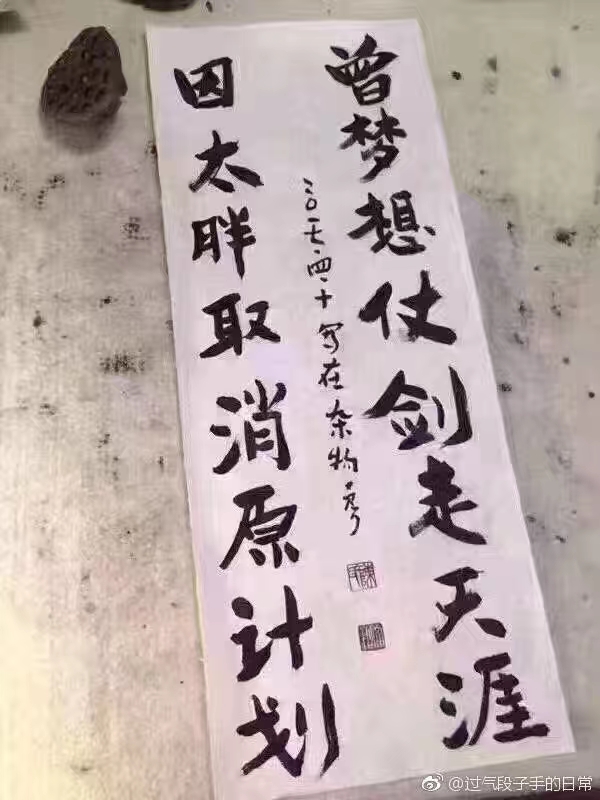 曾梦想仗剑走天涯
因太胖取消原计划
二〇一七·四·十 写在杂物
@过气段子手的日常